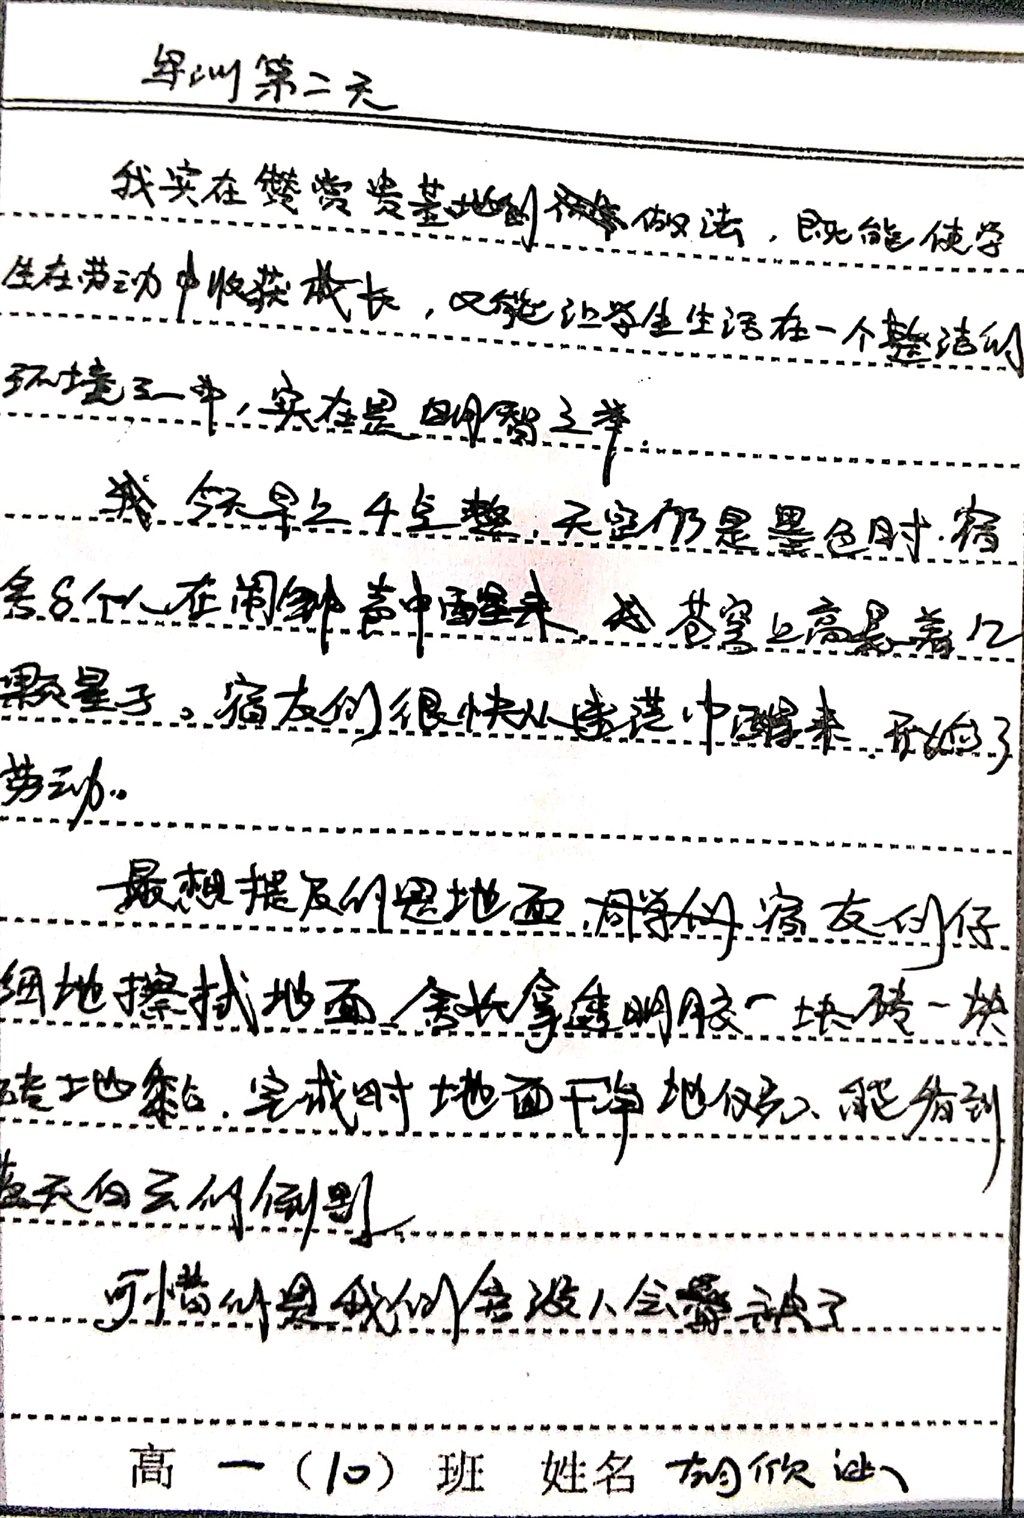 军训第二天
我实在赞赏贵基地的做法，既能使学
生在劳动中收获成长，又能让学生生活在一个整洁的
环境之中，实在是明智之举.
今天早上4点整，天空仍是墨色时.宿
舍8个人在闹钟声中醒来，苍穹上高悬着几
颗星子。宿友们很快从迷茫中醒来，开始了
劳动..
最想提及的是地面，宿友们仔
细地擦拭地面，舍长拿透明胶一块砖一块
砖地黏.完成时地面干净地，能看到
蓝天白云的倒影.
可惜的是我们舍没人会叠被了
高一（10）班 姓名 胡欣